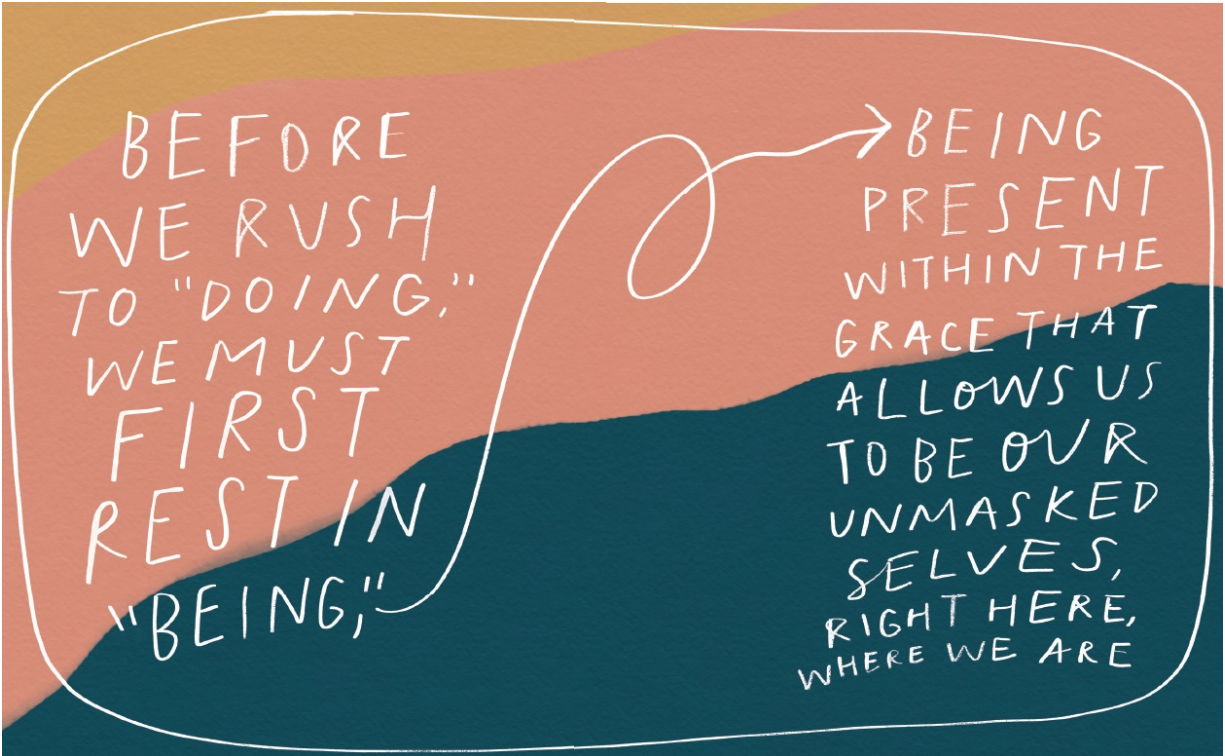 BEFORE
WE RUSH
TO "DOING,"
WE MUST
FIRST
REST IN
"BEING,"
BEING
PRESENT
WITHIN THE
GRACE THAT
ALLOWS US
TO BE OUR
UNMASKED
SELVES,
RIGHT HERE,
WHERE WE ARE